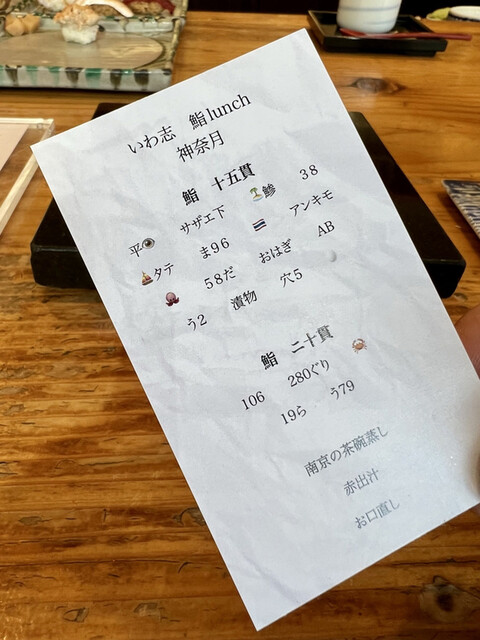 いわ志 鮨lunch
神奈月
鮨 十五貫
平👁 サザエ下 🏝鯵 38
タテ ま96 🇹🇭 アンキモ
🐙 58だ おはぎ AB
う2 漬物 穴5
鮨 二十貫
106 280ぐり 🦀
19ら う79
南京の茶碗蒸し
赤出汁
お口直し